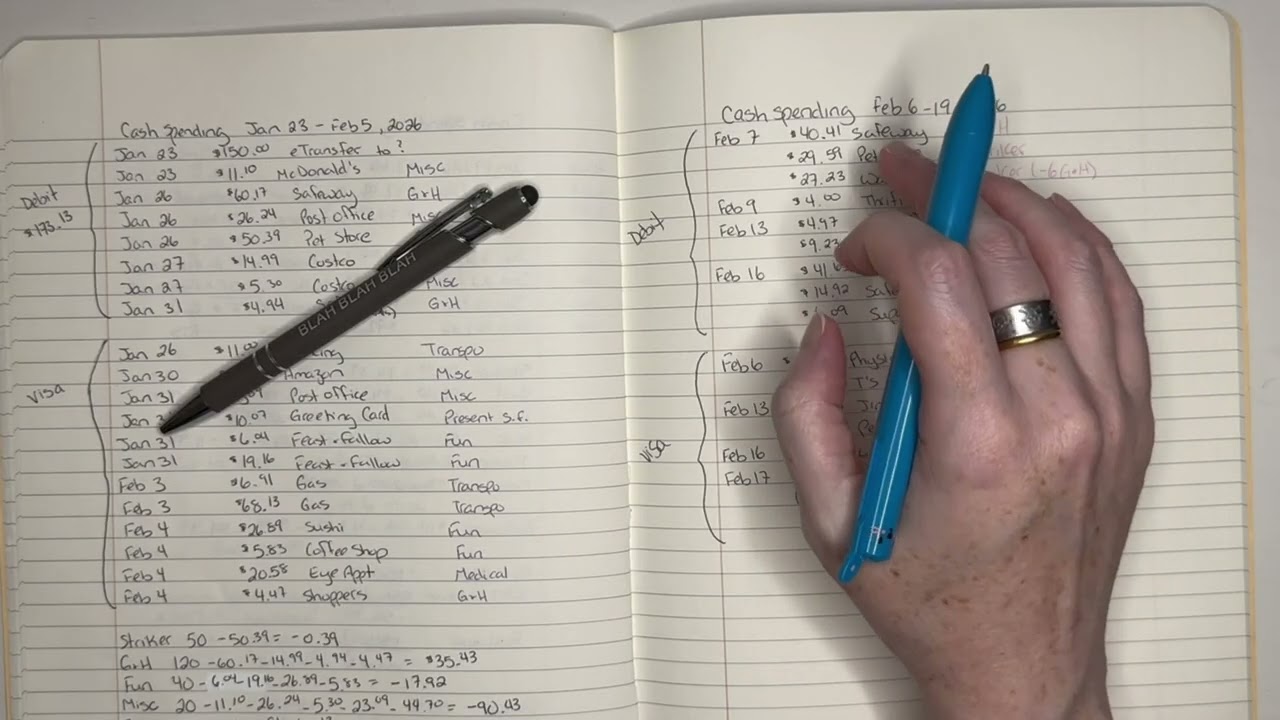 Cash spending Jan 23 - Feb 5, 2026
Debit
$173.13
Jan 23 $150.00 eTransfer to?
Jan 23 $11.10 McDonald's Misc
Jan 26 $60.17 Safeway G+H
Jan 26 $26.24 Post office
Jan 26 $50.39 Pet Store
Jan 27 $14.99 Costco
Jan 27 $5.30 Misc
Jan 31 $4.94 G+H
BLAH BLAH BLAH
Visa
Jan 26 Transpo
Jan 30 Amazon Misc
Jan 31 Post office Misc
Jan $10.07 Greeting Card Present S.F.
Jan 31 $6.04 Feast + Fallow Fun
Jan 31 $19.16 Feast + Fallow Fun
Feb 3 $6.91 Gas Transpo
Feb 3 $68.13 Gas Transpo
Feb 4 $26.89 Sushi Fun
Feb 4 $5.83 Coffee Shop Fun
Feb 4 $20.58 Eye Appt Medical
Feb 4 $4.47 Shoppers G+H
Striker 50 - 50.39 = -0.39
G+H 120 - 60.17 - 14.99 - 4.94 - 4.47 = $35.43
Fun 40 - 6.04 - 19.16 - 26.89 - 5.83 = -17.92
Misc 20 - 11.10 - 26.24 - 5.30 - 23.09 - 44.70 = -90.43
Cash spending Feb 6 - 19
Debit
Feb 7 $40.41 Safeway
$29.59 Pet
$27.23
Feb 9 $4.00
Feb 13 $4.97
$9.23
Feb 16
$14.92
Visa
Feb 6
T's
Feb 13
Feb 16
Feb 17